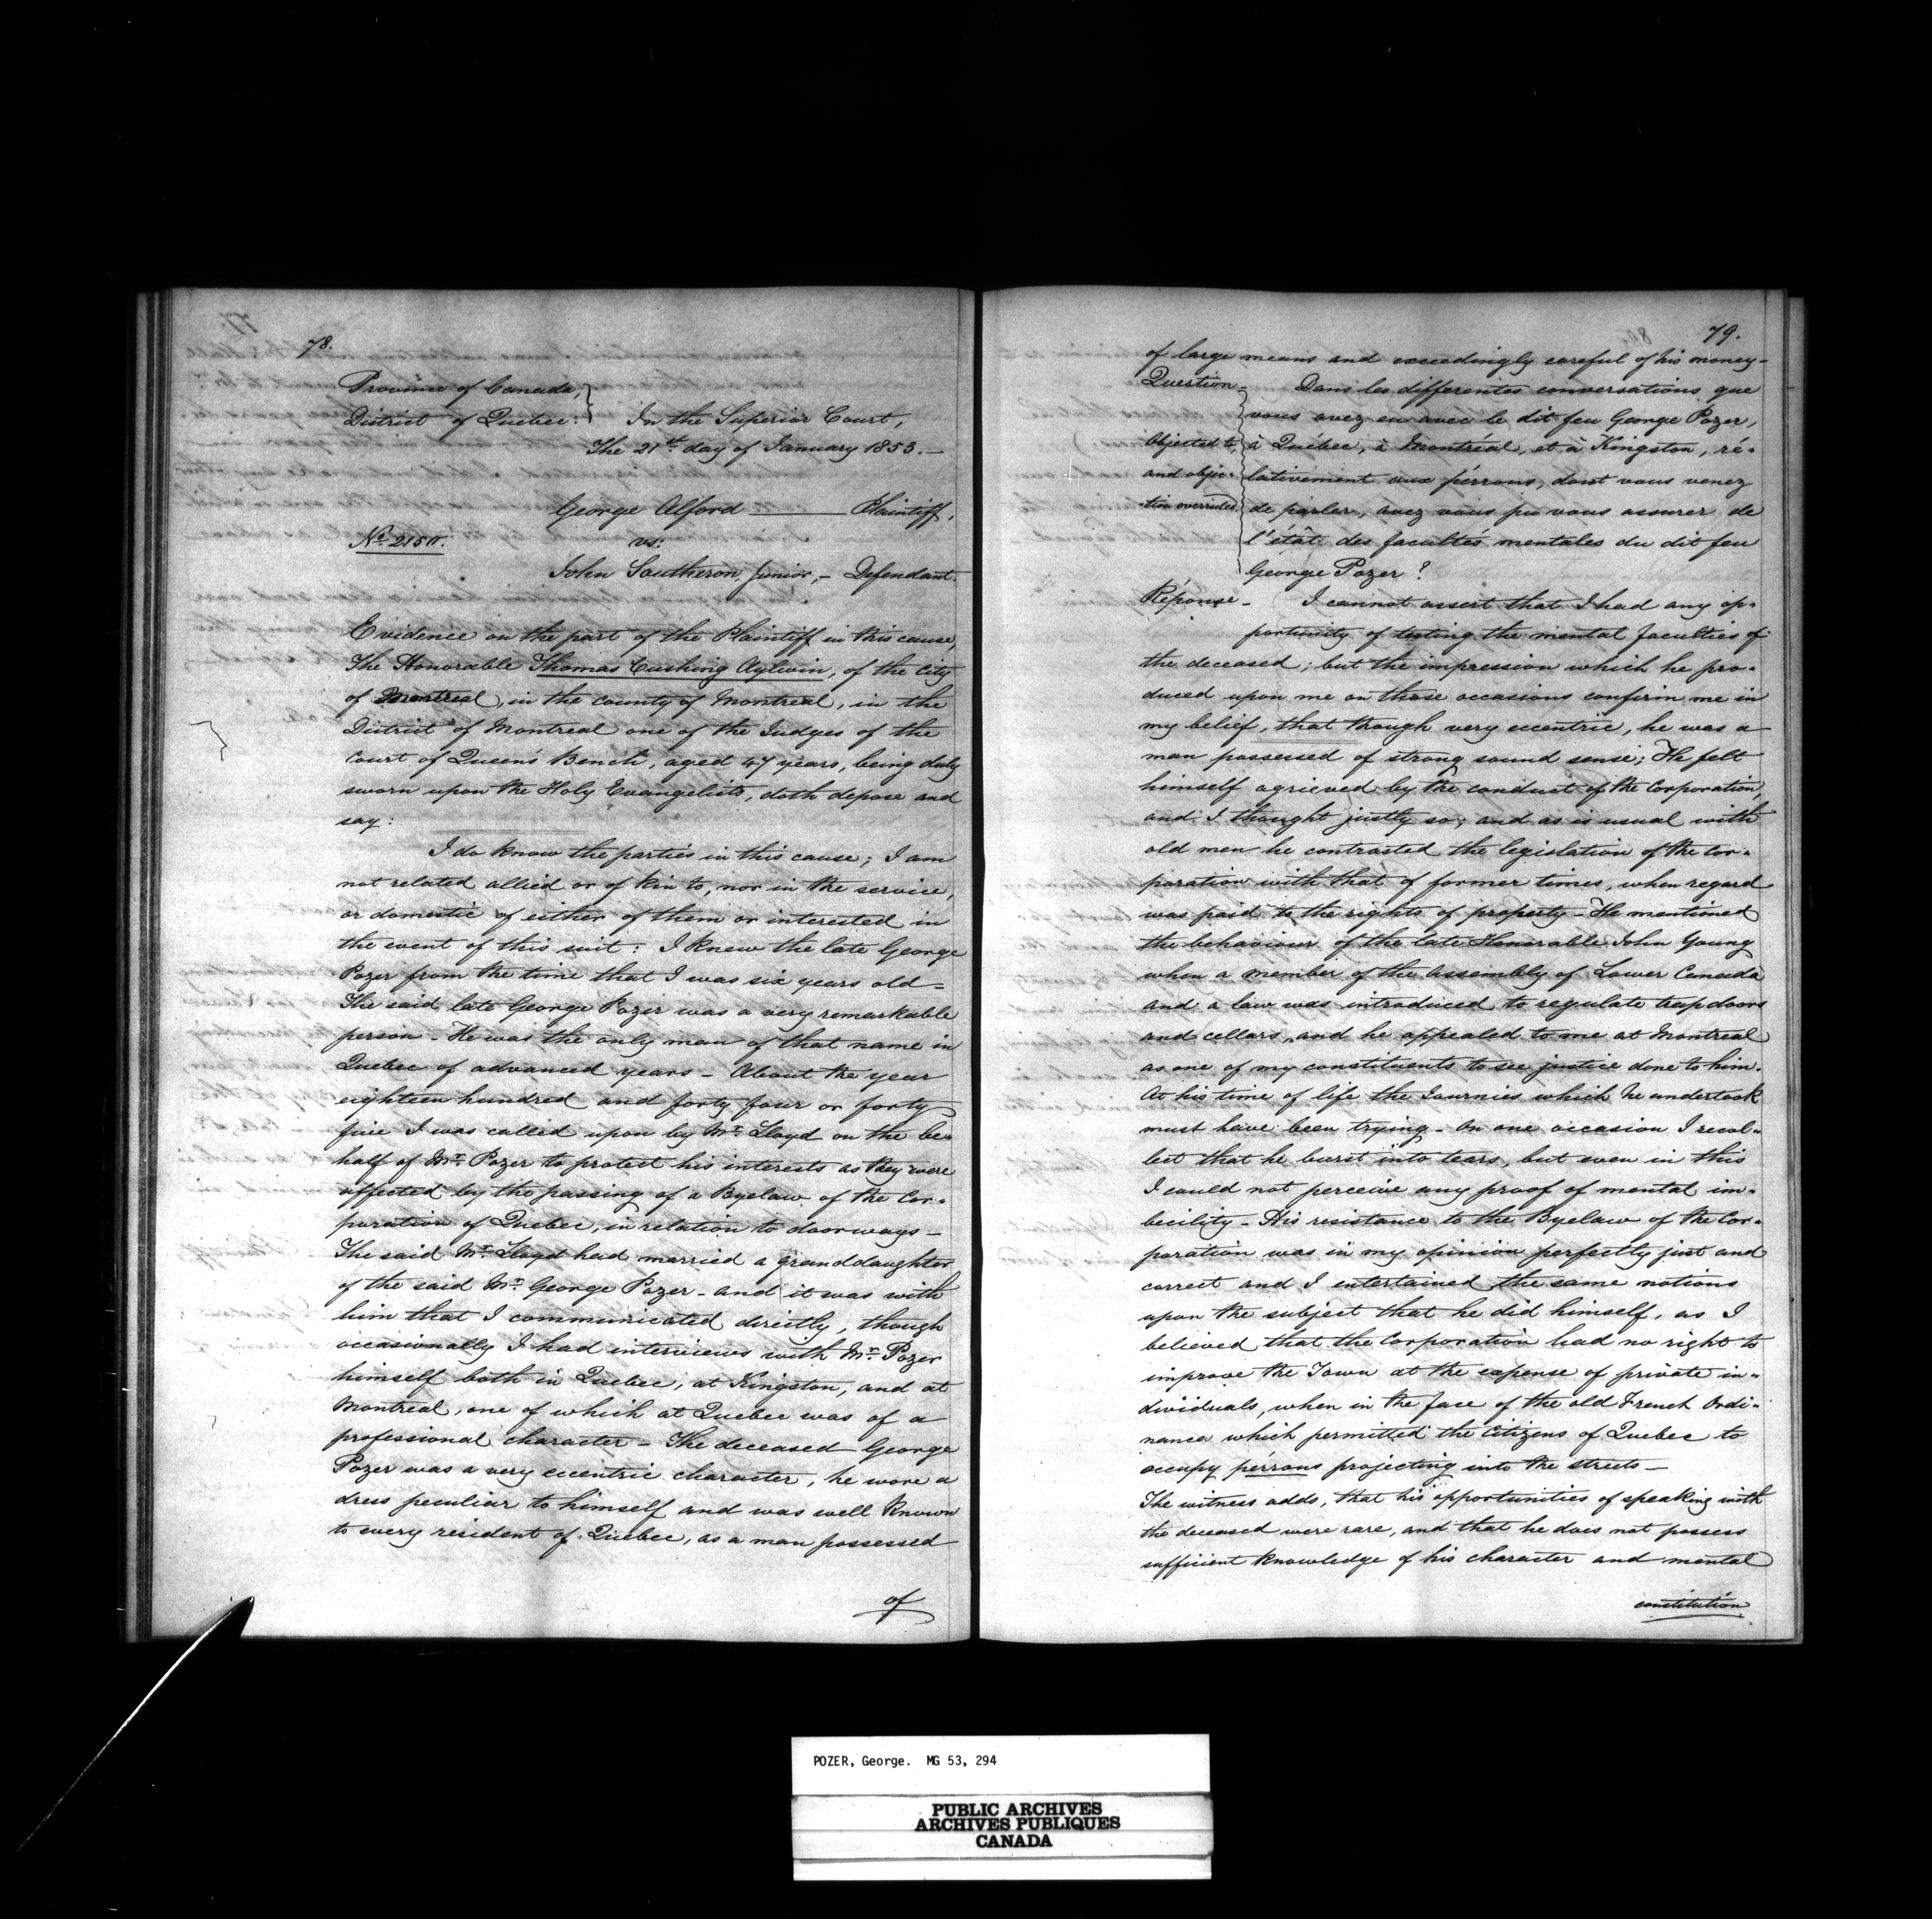 78.
Province of Canada,
District of Quebec. } In the Superior Court,
The 21st day of January 1853.—
George Alford ——— Plaintiff,
No. 215
vs.
John Southeron, Junior, — Defendant.
Evidence on the part of the Plaintiff in this cause,
The Honorable Thomas Cushing Aylwin, of the City
of Montreal, in the county of Montreal, in the
District of Montreal one of the Judges of the
Court of Queen's Bench, aged 47 years, being duly
sworn upon the Holy Evangelists, doth depose and
say:
I do know the parties in this cause; I am
not related allied or of kin to, nor in the service,
or domestic of either of them or interested in
the event of this suit: I knew the late George
Pozer from the time that I was six years old =
The said late George Pozer was a very remarkable
person - He was the only man of that name in
Quebec of advanced years - About the year
eighteen hundred and forty four or forty
five I was called upon by Mr. Lloyd on the be=
half of Mr. Pozer to protect his interests as they were
affected by the passing of a Byelaw of the Cor=
poration of Quebec, in relation to doorways -
The said Mr. Lloyd had married a granddaughter
of the said Mr. George Pozer - and it was with
him that I communicated directly, though
occasionally I had interviews with Mr. Pozer
himself both in Quebec, at Kingston, and at
Montreal, one of which at Quebec was of a
professional character - The deceased George
Pozer was a very eccentric character, he wore a
dress peculiar to himself and was well known
to every resident of Quebec, as a man possessed
of
79.
of large means and exceedingly careful of his money -
Question - Dans les differentes conversations que
vous avez eu avec le dit feu George Pozer,
Objected to, à Québec, à Montréal, et à Kingston, ré=
and objec= lativement aux pérrons, dont vous venez
=tion overruled. de parler, avez vous pu vous assurer de
l'état des facultés mentales du dit feu
George Pozer?
Réponse - I cannot assert that I had any op=
portunity of testing the mental faculties of
the deceased; but the impression which he pro=
duced upon me on those occasions confirm me in
my belief, that though very eccentric, he was a
man possessed of strong sound sense; He felt
himself agrieved by the conduct of the Corporation,
and I thought justly so; and as is usual with
old men he contrasted the legislation of the Cor=
poration with that of former times, when regard
was paid to the rights of property - He mentioned
the behaviour of the late Honorable John Young
when a member of the Assembly of Lower Canada
and a law was introduced to regulate trap doors
and cellars, and he appealed to me at Montreal
as one of my constituents to see justice done to him.
At his time of life the Journies which he undertook
must have been trying - On one occasion I recol=
lect that he burst into tears, but even in this
I could not perceive any proof of mental im=
becility - His resistance to the Byelaw of the Cor=
poration was in my opinion perfectly just and
correct and I entertained the same notions
upon the subject that he did himself, as I
believed that the Corporation had no right to
improve the Town at the expense of private in=
dividuals, when in the face of the old French Ordi=
nance which permitted the Citizens of Quebec to
occupy pérrons projecting into the streets —
The witness adds, that his opportunities of speaking with
the deceased were rare, and that he does not possess
sufficient knowledge of his character and mental
constitution
POZER, George. MG 53, 294
PUBLIC ARCHIVES
ARCHIVES PUBLIQUES
CANADA